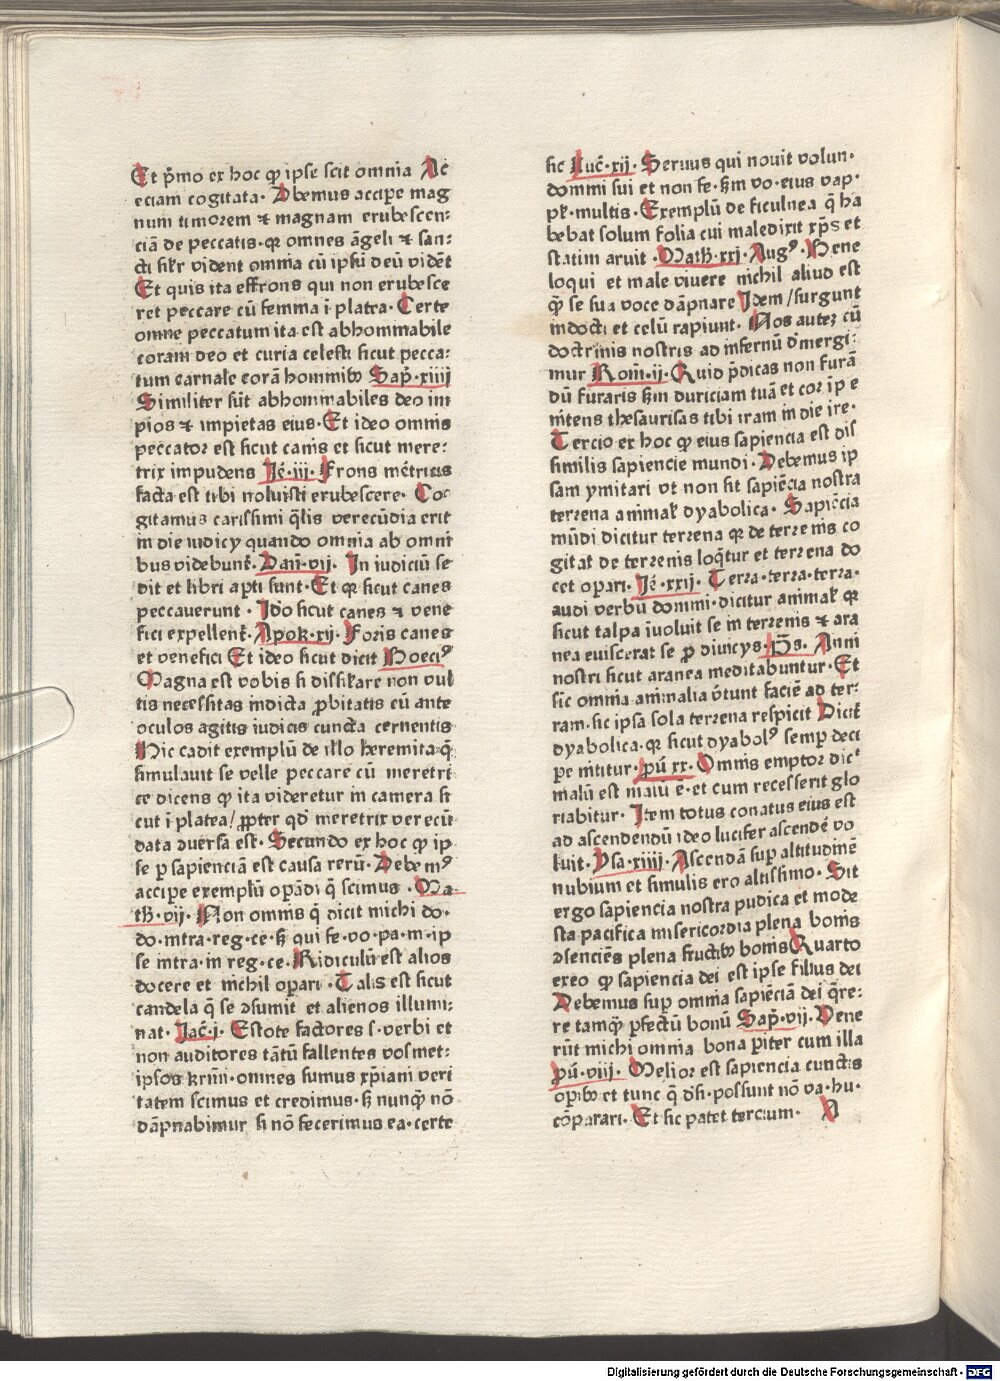 Et p̄mo ex hoc ꝙ ipse scit omnia Ac
eciam cogitata· Dbemus accipe mag
num timorem ⁊ magnam erubescen:
ciā de peccatis· qꝛ omnes āgeli ⁊ san:
cti silꝛ vident omnia cū ipsū deū vidēt
Et quis ita effrons qui non erubesce
ret peccare cū femina ī platea· Certe
omne peccatum ita est abhominabile
coram deo et curia celesti sicut pecca:
tum carnale corā hominibꝰ Sap̄·xiiij
Similiter sūt abhominabiles deo im
pios ⁊ impietas eius· Et ideo omnis
peccator est sicut canis et sicut mere:
trix impudens Je͛·iii· Frons me͛tricis
facta est tibi noluisti erubescere· Co:
gitamus carissimi q̄lis verecūdia erit
in die iudicy quando omnia ab omni
bus videbunt̛· Dani͛·vij· In iudiciū se
dit et libri apti sunt· Et qꝛ sicut canes
peccauerunt · Ido sicut canes ⁊ vene
fici expellent̛· Apok·xij· Foris canes
et venefici Et ideo sicut dicit Boeciꝰ
Magna est vobis si dissilare non vul
tis necessitas indicta p̱bitatis cū ante
oculos agitis iudicis cuncta cernentis
Hic cadit exemplū de illo heremita·q̄
simulauit se velle peccare cū meretri
ce dicens ꝙ ita videretur in camera si
cut ī platea/ ꝓpter qd̛ meretrix verecū
data ꝯuersa est· Secundo ex hoc ꝙ ip
se p sapienciam est causa rerū· Debemꝰ
accipe exemplū opādi q̄ scimus ·Ma·
th̛·vij· Non omnis q̄ dicit michi do·
do·intra·reg·ce·ß qui fe·vo·pa·m·ip
se intra·in reg·ce· Ridiculū est alios
docere et nichil opari · Talis est sicut
candela q̄ se ꝯsumit et alienos illumi:
nat· Jac̛·j· Estote factores s·verbi et
non auditores tātū fallentes vosmet:
ipsos krm̄i·omnes sumus xp̄iani veri
tatem scimus et credimus·ß nunqꝫ nō
dāpnabimur si nō fecerimus ea·certe
sic Luc̛·xij· Seruus qui nouit volun·
domini sui et non fe·ßm vo·eius vap·
pl̛·multis· Exemplū de ficulnea q̄ ha
bebat solum folia cui maledixit xp̄s et
statim aruit ·Math̛·xxj· Augꝰ· Bene
loqui et male viuere nichil aliud est
qꝫ se sua voce dāpnare Idem/surgunt
indocti et celū rapiunt· Nos autez cū
doctrinis nostris ad infernū d̛mergi:
mur Rom̄·ij· Quid p̄dicas non furā
dū furaris ßm duriciam tuā et cor īp e
nitens thesaurisas tibi iram in die ire·
Tercio ex hoc ꝙ eius sapiencia est dis
similis sapiencie mundi· Debemus ip
sam ymitari vt non sit sapiēcia nostra
terrena animal̛ dyabolica· Sapiēcia
mūdi dicitur terrena qꝛ de terrenis co
gitat̛ de terrenis loq̄tur et terrena do
cet opari· Je͛·xxij· Terra·terra·terra·
audi verbū domini·dicitur animal̛ qꝛ
sicut talpa īuoluit se in terrenis ⁊ ara
nea euiscerat se ꝓ diuicys· P̄s· Anni
nostri sicut aranea meditabuntur· Et
sic̛ omnia animalia v̛tunt faciē ad ter:
ram·sic ipsa sola terrena respicit Dicit̛
dyabolica·qꝛ sicut dyabolꝰ semp deci
pe nitit̛ur· p̱ū xx· Omnis emptor dic̛t
malū est malū ē· et cum recesserit glo
riabitur· Item totus conatus eius est
ad ascendendū ideo lucifer ascende͛ vo
luit· Ysa·xiiij· Ascendā sup altitudinē
nubium et similis ero altissimo· Sit
ergo sapiencia nostra pudica et mode
sta pacifica misericordia plena bonis
ꝯsenciēs plena fructibꝰ bonis Quarto
exeo ꝙ sapiencia dei est ipse filius dei
Debemus sup omnia sapiēciā dei q̄re:
re tamqꝫ pfectū bonū Sap̄·vij· Vene
rūt michi omnia bona piter cum illa
p̱ū·viij· Melior est sapiencia cunctis
opibꝰ et tunc q̄ d̛si·possunt nō va·hu·
cōparari· Et sic patet tercium· A
Digitalisierung gefördert durch die Deutsche Forschungsgemeinschaft - DFG